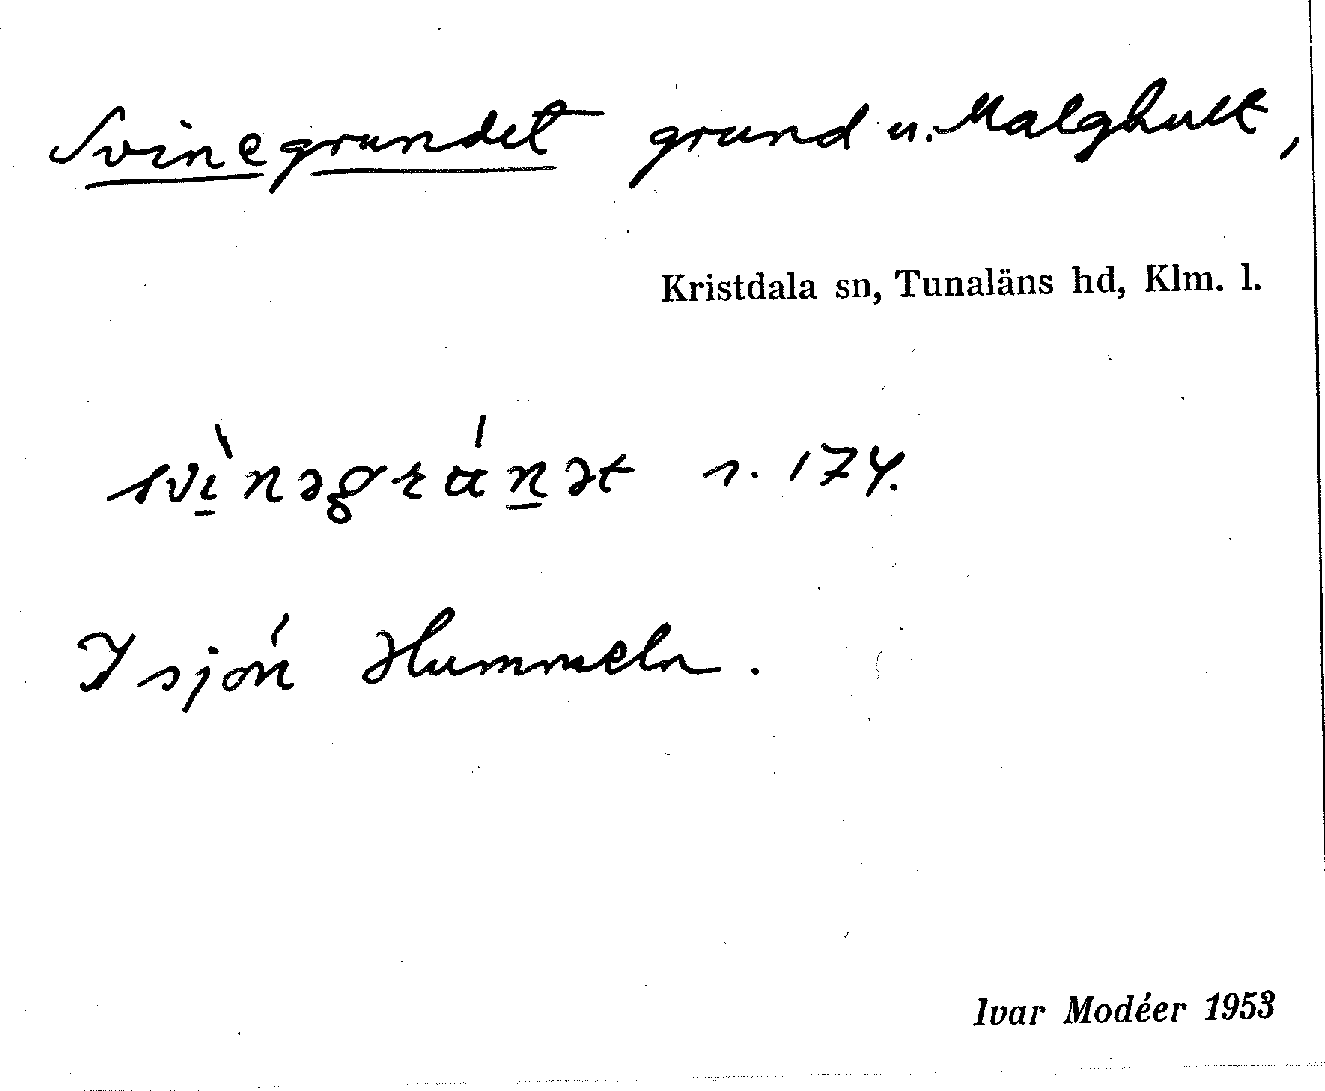 Svinegrundet grund u. Malghult,
Kristdala sn, Tunaläns hd, Klm. l.
svìnəgránət s. 174.
I sjön Hummeln.
Ivar Modéer 1953